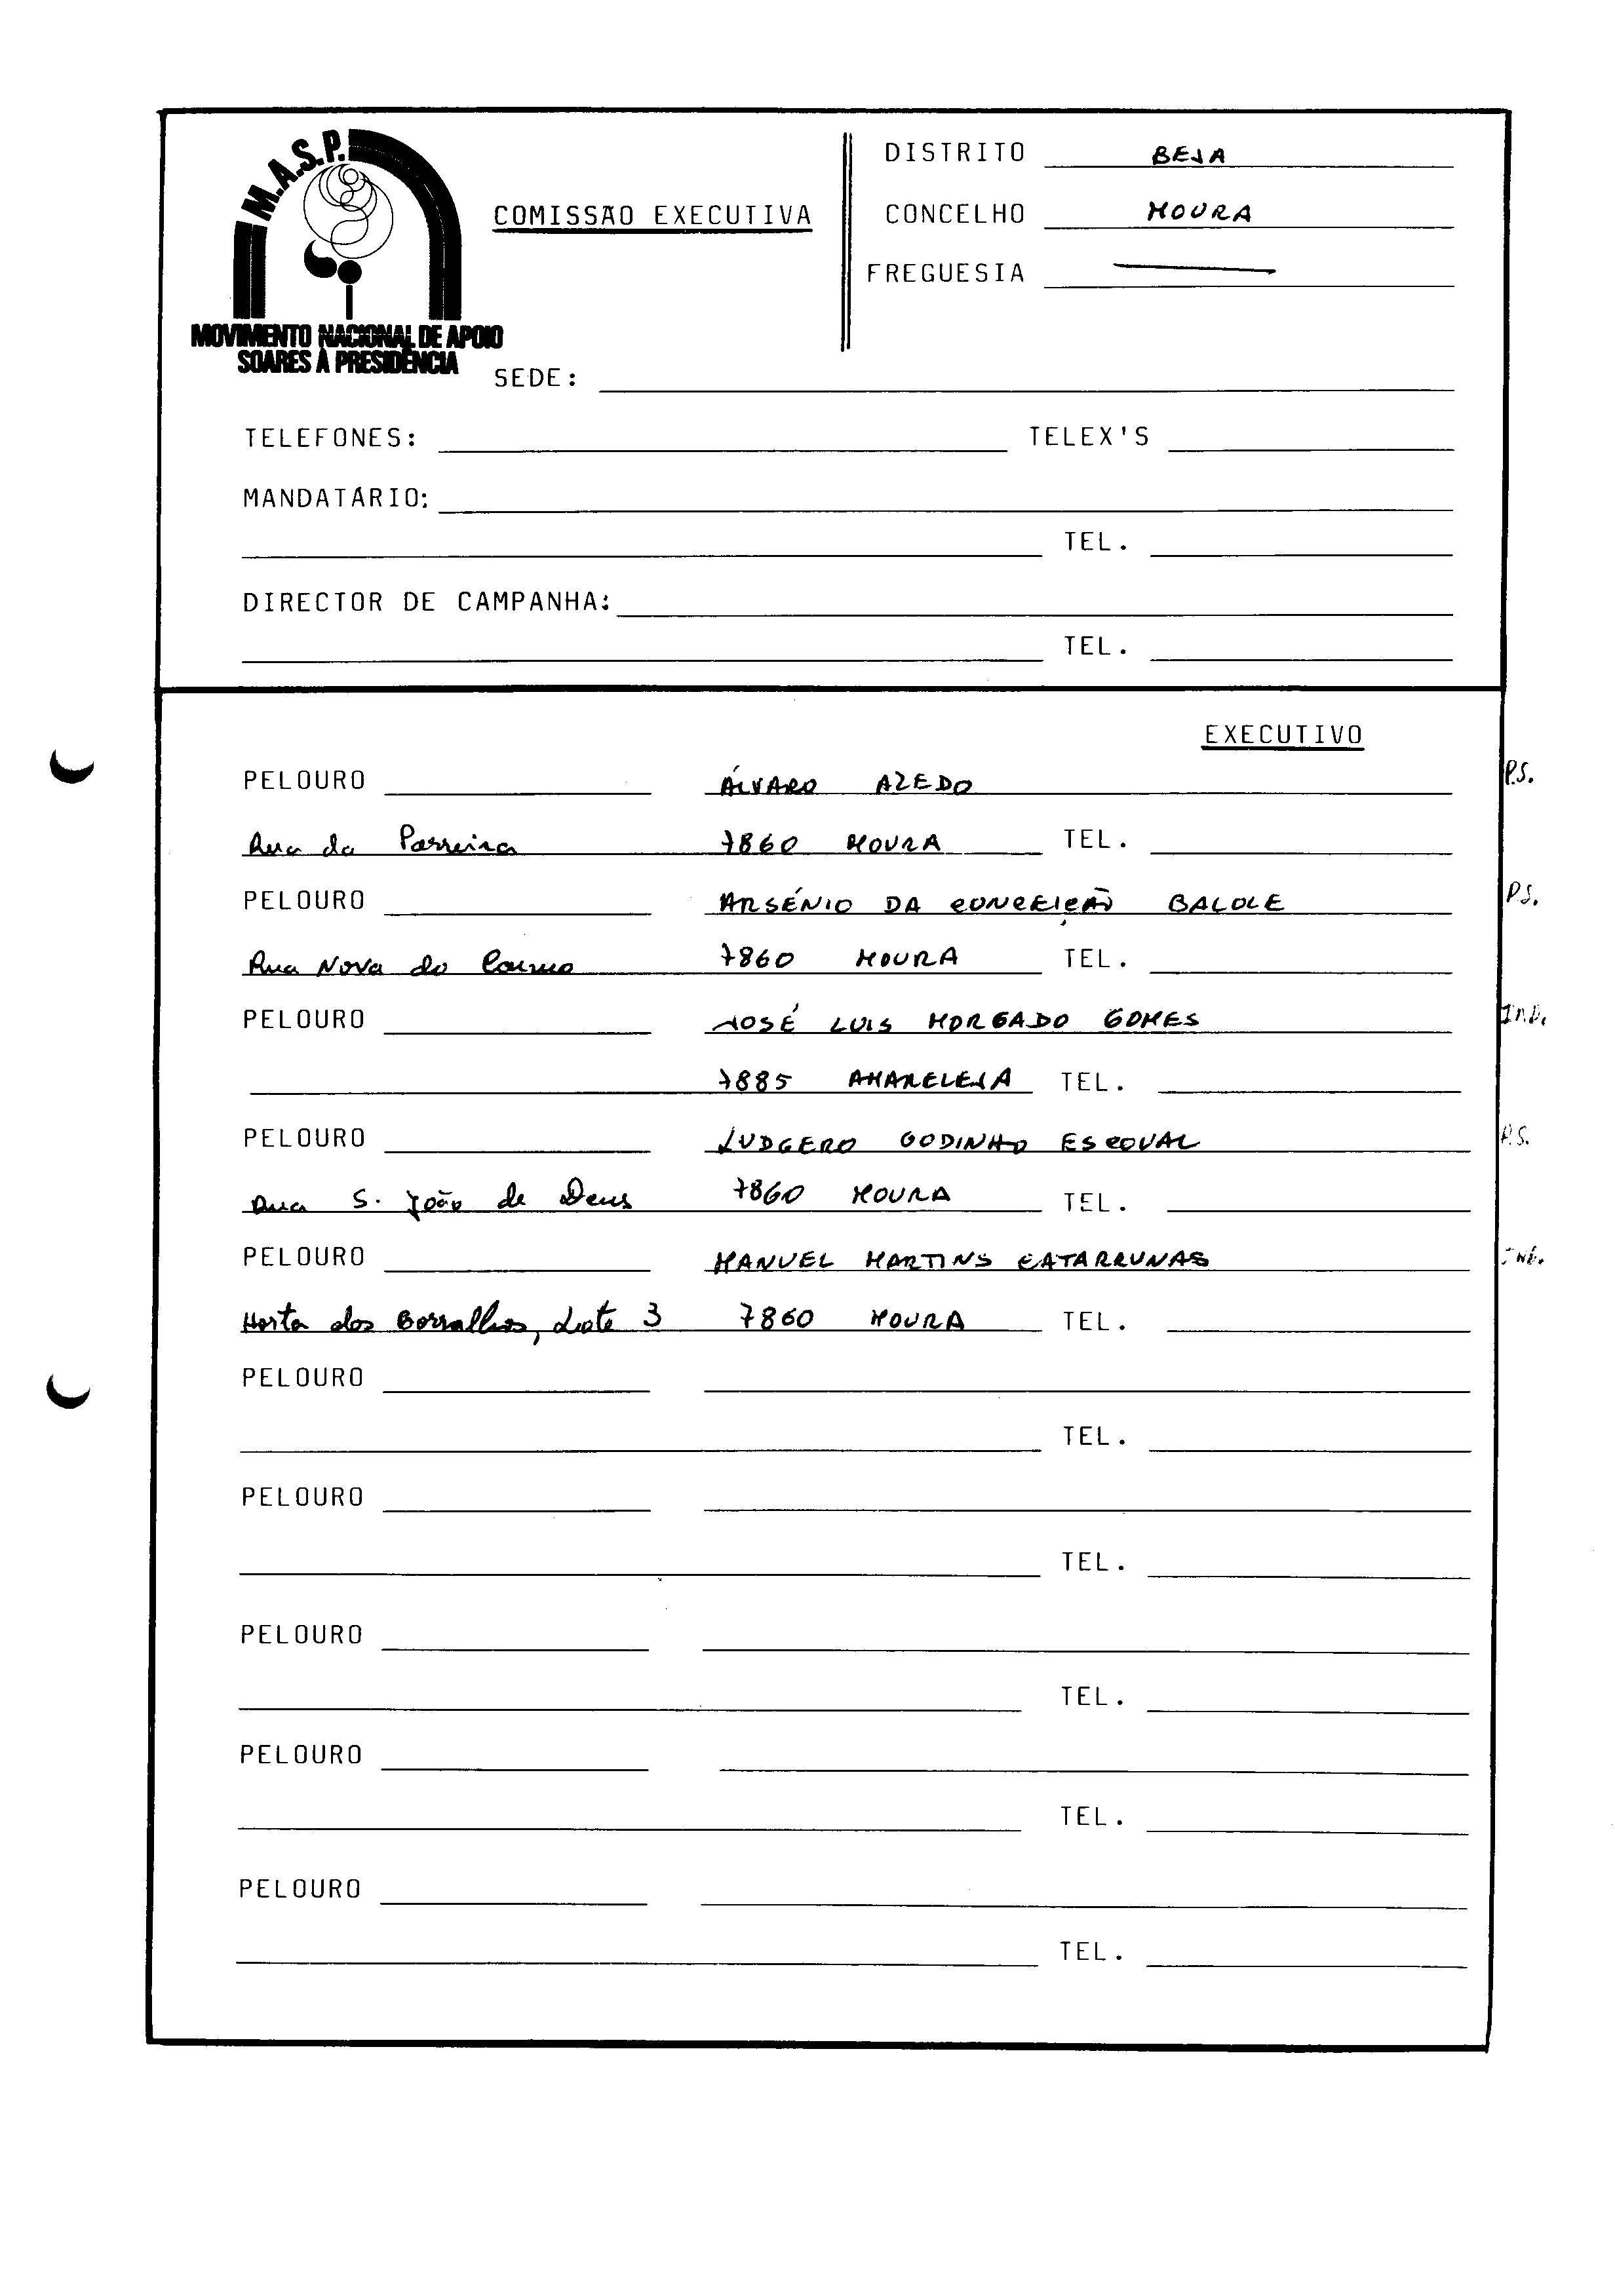 M.A.S.P.
MOVIMENTO NACIONAL DE APOIO
SOARES À PRESIDÊNCIA
COMISSÃO EXECUTIVA
DISTRITO BEJA
CONCELHO MOURA
FREGUESIA
SEDE:
TELEFONES: TELEX'S
MANDATÁRIO:
TEL.
DIRECTOR DE CAMPANHA:
TEL.
EXECUTIVO
PELOURO ÁLVARO AZEDO P.S.
Rua da Parreira 7860 MOURA TEL.
PELOURO ARSÉNIO DA CONCEIÇÃO BALOLE P.S.
Rua Nova do 7860 MOURA TEL.
PELOURO JOSÉ LUIS MORGADO GOMES IND.
7885 AMARELEJA TEL.
PELOURO LUDGERO GODINHO ESCOVAL P.S.
Rua S. João de Deus 7860 MOURA TEL.
PELOURO MANUEL MARTINS CATARRUNAS Ind.
Horta dos Borralhos, Lote 3 7860 MOURA TEL.
PELOURO
TEL.
PELOURO
TEL.
PELOURO
TEL.
PELOURO
TEL.
PELOURO
TEL.